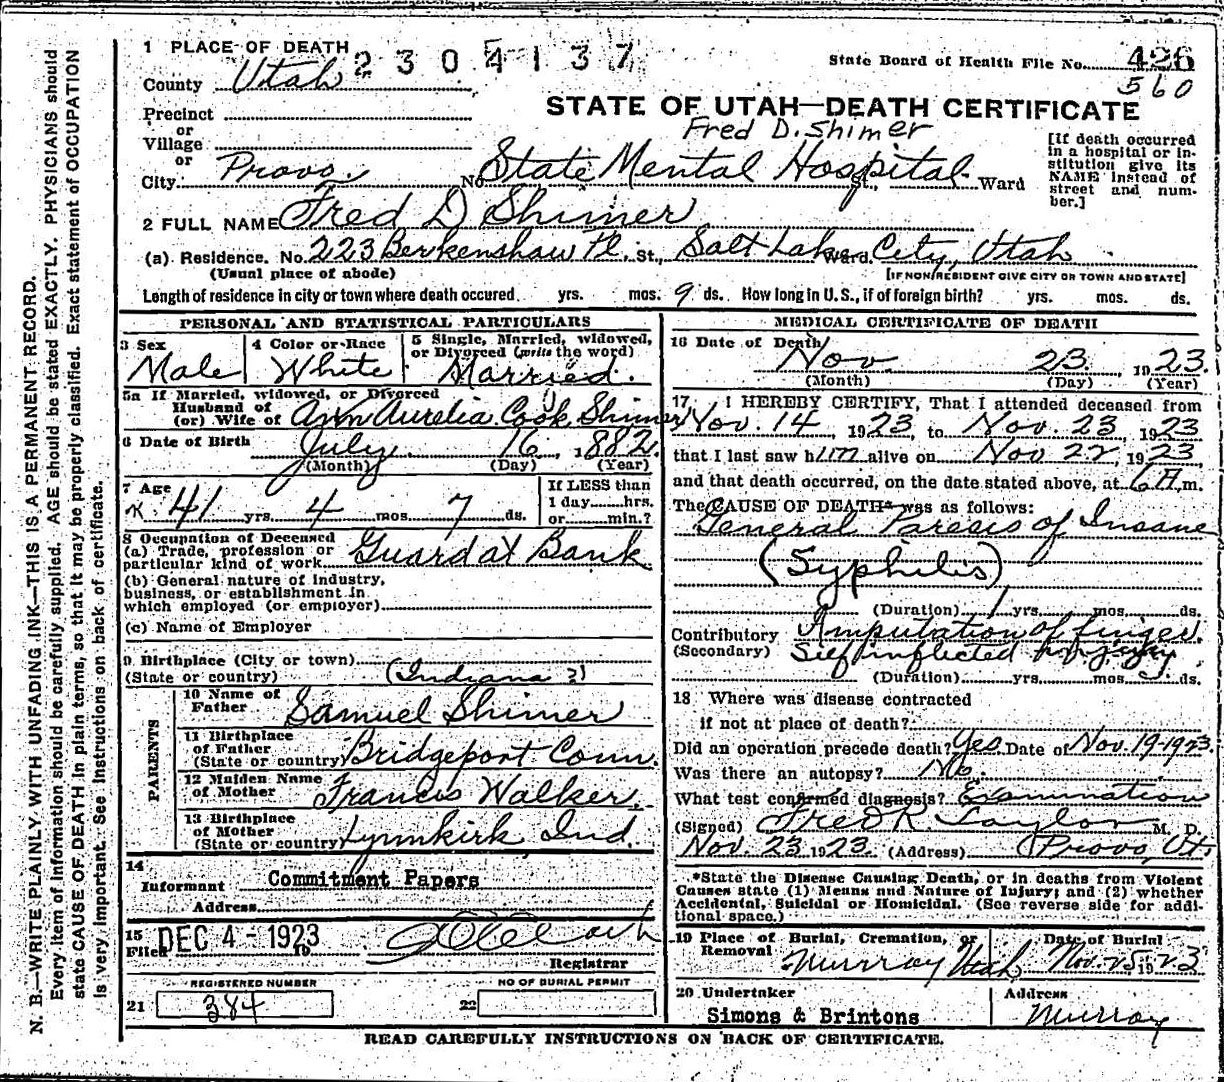 1 PLACE OF DEATH
2304137
State Board of Health File No. 426
560
County Utah
STATE OF UTAH—DEATH CERTIFICATE
Fred D. Shimer
Precinct
or
Village
or
City Provo No. State Mental Hospital St., Ward
[If death occurred in a hospital or institution give its NAME instead of street and number.]
2 FULL NAME Fred D Shimer
(a) Residence. No. 223 Berkenshaw Pl. St., Salt Lake Ward City, Utah
(Usual place of abode)
[IF NON/RESIDENT GIVE CITY OR TOWN AND STATE]
Length of residence in city or town where death occured yrs. mos. 9 ds. How long in U. S., if of foreign birth? yrs. mos. ds.
PERSONAL AND STATISTICAL PARTICULARS
3 Sex
Male
4 Color or Race
White
5 Single, Married, widowed, or Divorced (write the word)
Married.
5a If Married, widowed, or Divorced
Husband of
(or) Wife of Ann Aurelia Cook Shimer
6 Date of Birth July 16 1882
(Month) (Day) (Year)
7 Age
41 yrs. 4 mos. 7 ds.
If LESS than
1 day......hrs.
or......min.?
8 Occupation of Deceased
(a) Trade, profession or particular kind of work Guard at Bank
(b) General nature of industry, business, or establishment in which employed (or employer)
(c) Name of Employer
9 Birthplace (City or town)
(State or country) (Indiana ?)
PARENTS
10 Name of Father Samuel Shimer
11 Birthplace of Father
(State or country) Bridgeport Conn.
12 Maiden Name of Mother Francis Walker
13 Birthplace of Mother
(State or country) Lynnkirk, Ind.
14
Informant Commitment Papers
Address
15
Filed DEC 4 - 1923 19
Registrar
REGISTERED NUMBER
21 384
NO OF BURIAL PERMIT
22
MEDICAL CERTIFICATE OF DEATH
16 Date of Death
Nov. 23 1923
(Month) (Day) (Year)
17 I HEREBY CERTIFY, That I attended deceased from
Nov. 14, 1923, to Nov. 23, 1923
that I last saw him alive on Nov 22, 1923,
and that death occurred, on the date stated above, at 6 A m.
The CAUSE OF DEATH* was as follows:
General Paresis of Insane
(Syphilis)
(Duration) 1 yrs. mos. ds.
Contributory Amputation of finger.
(Secondary) Self inflicted injury
(Duration) yrs. mos. 5 ds.
18 Where was disease contracted
if not at place of death?
Did an operation precede death? Yes Date of Nov. 19-1923
Was there an autopsy? No.
What test confirmed diagnosis? Examination
(Signed) Fred R. Taylor M. D.
Nov. 23 1923. (Address) Provo, Ut.
*State the Disease Causing Death, or in deaths from Violent Causes state (1) Means and Nature of Injury; and (2) whether Accidental, Suicidal or Homicidal. (See reverse side for additional space.)
19 Place of Burial, Cremation, or Removal
Murray Utah
Date of Burial
Nov. 25 1923
20 Undertaker
Simons & Brintons
Address
Murray
READ CAREFULLY INSTRUCTIONS ON BACK OF CERTIFICATE.
N. B.—WRITE PLAINLY WITH UNFADING INK—THIS IS A PERMANENT RECORD.
Every item of information should be carefully supplied. AGE should be stated EXACTLY. PHYSICIANS should
state CAUSE OF DEATH in plain terms, so that it may be properly classified. Exact statement of OCCUPATION
is very important. See instructions on back of certificate.